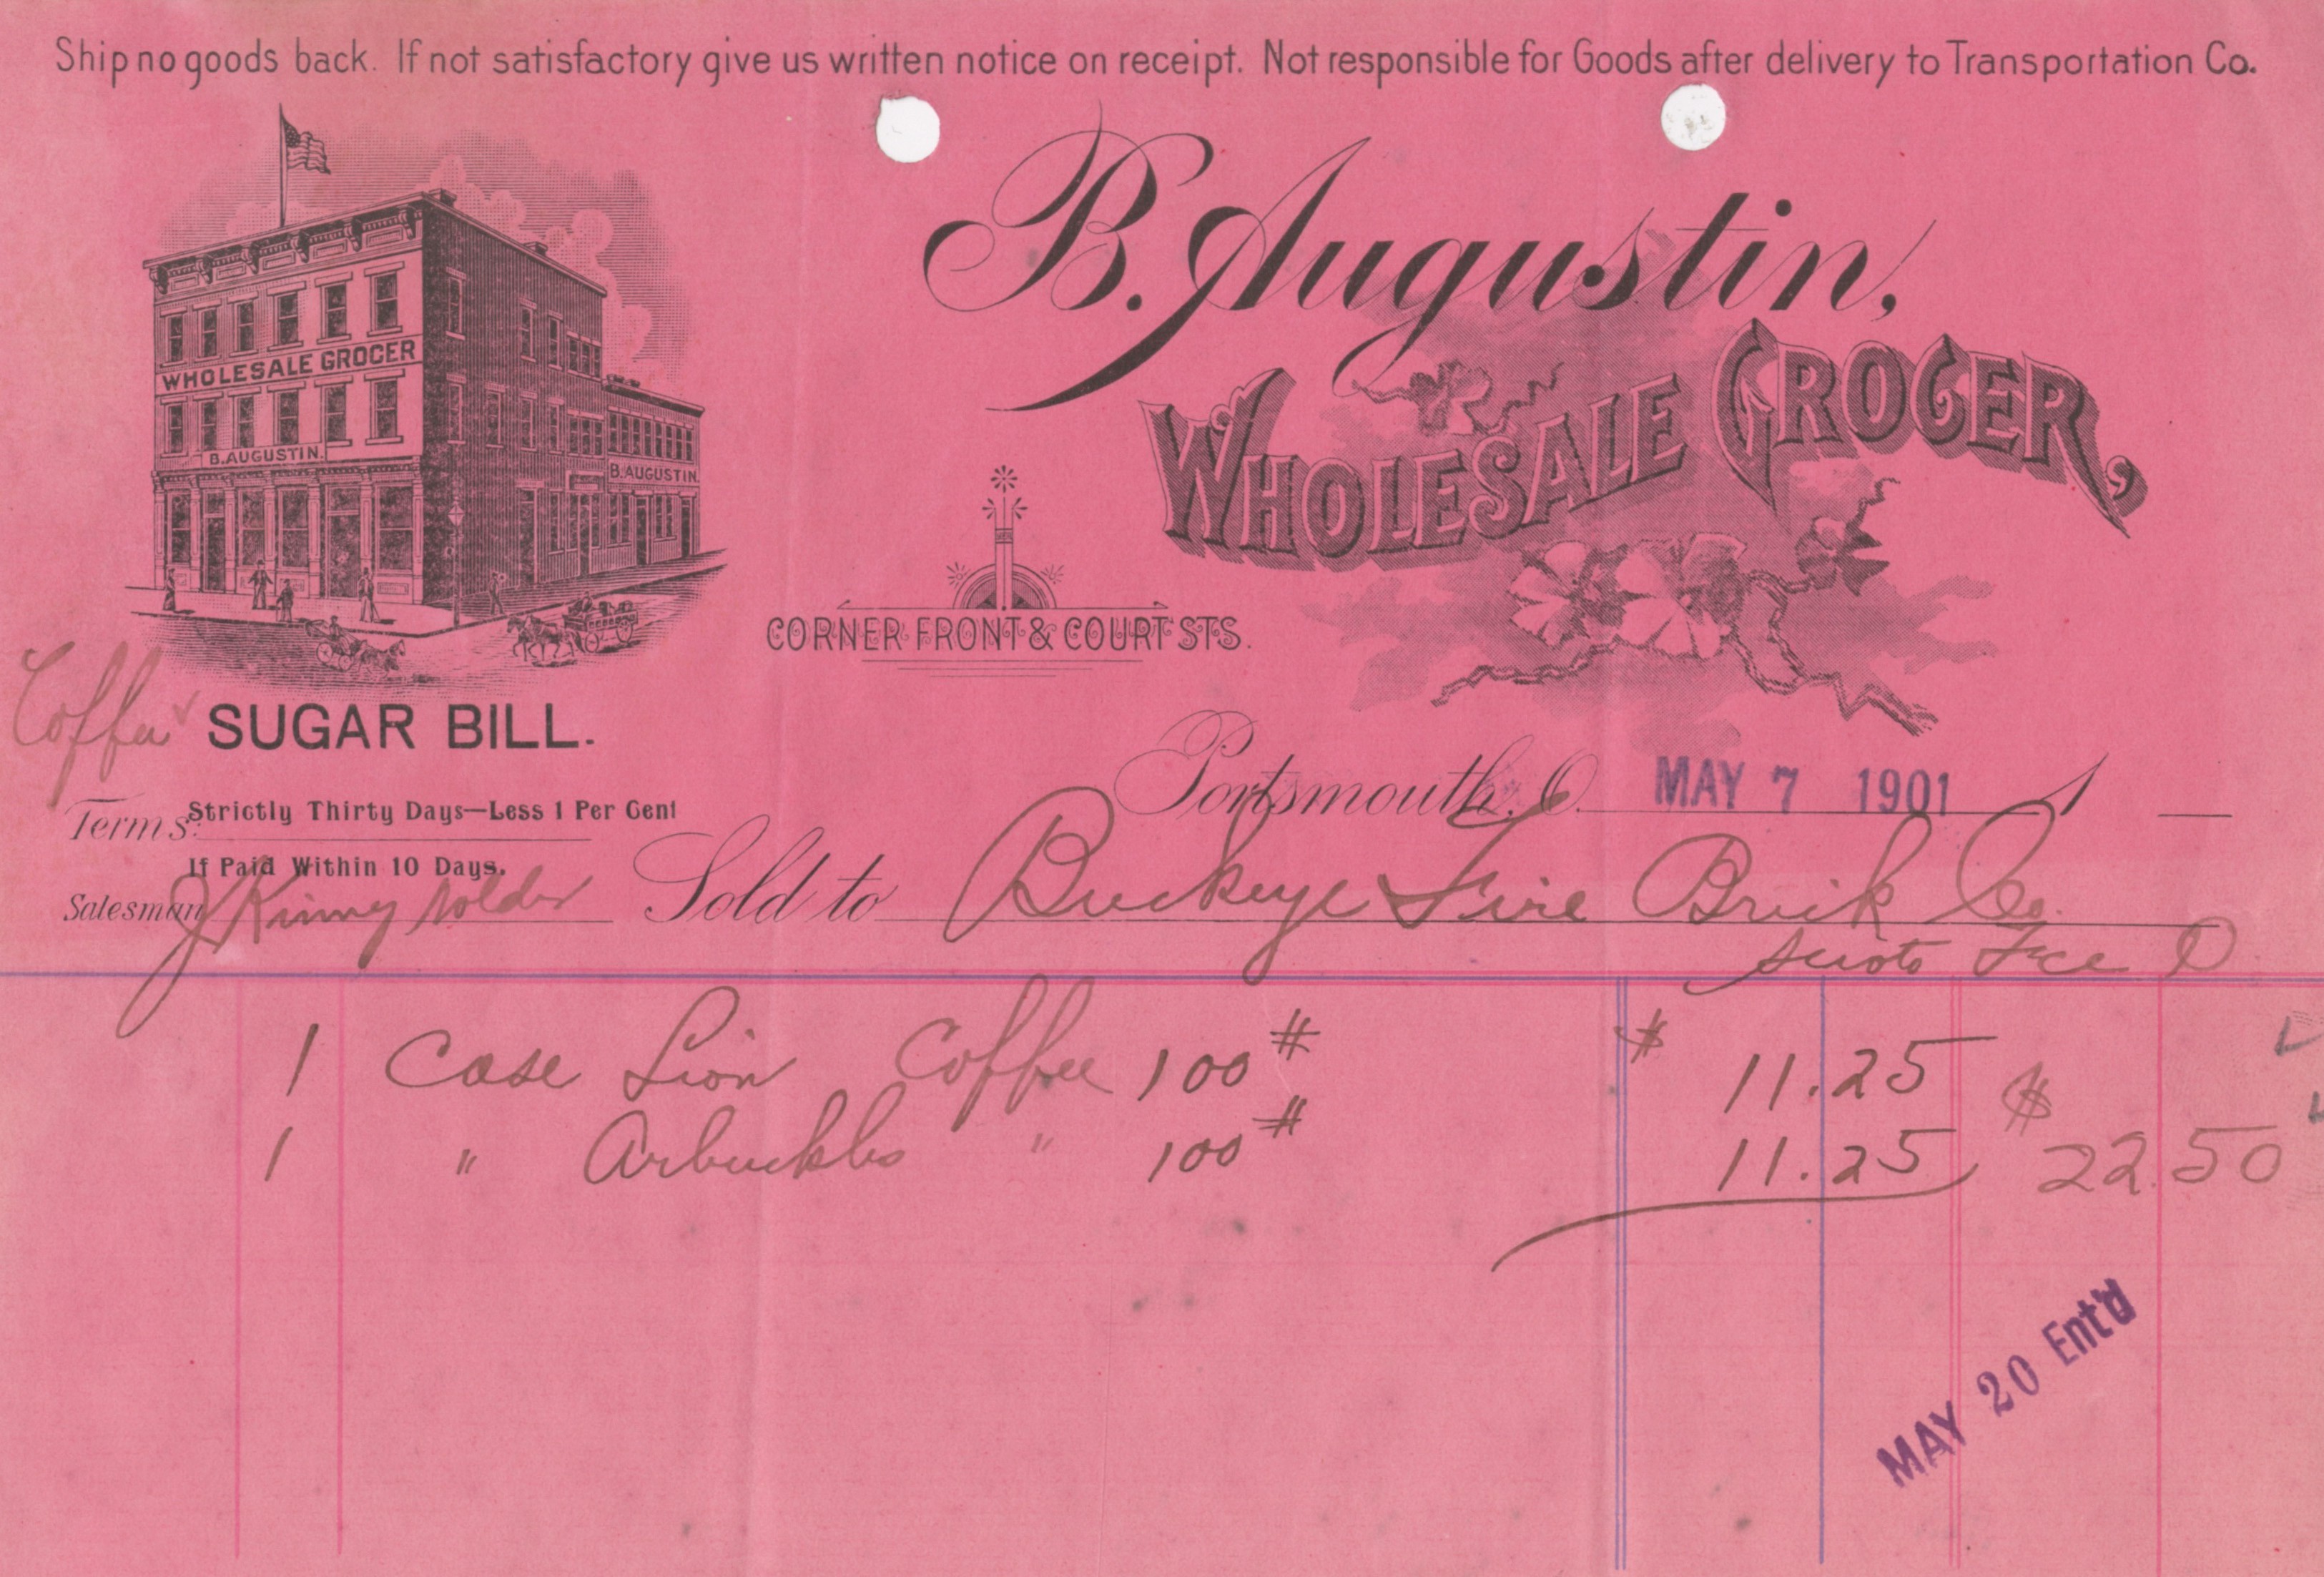 Ship no goods back. If not satisfactory give us written notice on receipt. Not responsible for Goods after delivery to Transportation Co.
B. Augustin,
WHOLESALE GROCER,
WHOLESALE GROCER
B. AUGUSTIN.
B. AUGUSTIN.
CORNER FRONT & COURT STS.
Coffee
SUGAR BILL.
Portsmouth, O. MAY 7 1901 1
Terms: Strictly Thirty Days—Less 1 Per Cent
If Paid Within 10 Days.
Salesman J Kinney
Sold to Buckeye Fire Brick Co.
Scioto Fce O
1 Case Lion Coffee 100 # $ 11.25
1 " Arbuckles " 100 # 11.25 $ 22.50
MAY 20 Ent'd